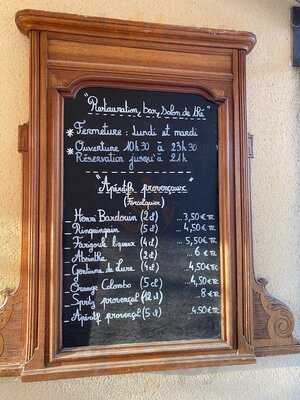 "Restauration, bar, salon de thé"
* Fermeture : Lundi et mardi
* Ouverture 10h30 à 23h30
Réservation jusqu'à 21h
"Apéritifs provençaux"
(Forcalquier)
_ Henri Bardouin (2cl) ... 3,50€ TTC
_ Rinquinquin (5cl) ... 4,50€ TTC
_ Farigoule liqueur (4cl) ... 5,50€ TTC
_ Absinthe (2cl) ... 6€ TTC
_ Gentiane de Lure (4cl) ... 4,50€ TTC
_ Orange Colombo (5cl) ... 4,50€ TTC
_ Spritz provençal (12cl) ... 8€ TTC
_ Apéritif provençal (5cl) ... 4,50€ TTC